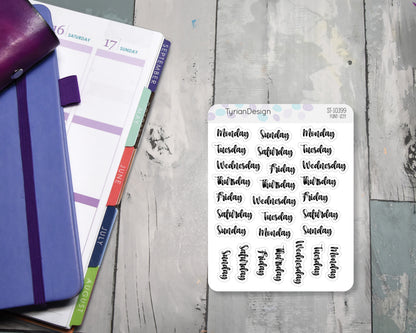 16 SATURDAY
17 SUNDAY
SEPTEMBER
JUNE
JULY
AUGUST
TyrianDesign
ST-10399
Monday Sunday Monday
Tuesday Saturday Tuesday
Wednesday Friday Wednesday
Thursday Thursday Thursday
Friday Wednesday Friday
Saturday Tuesday Saturday
Sunday Monday Sunday
Sunday Saturday Friday Thursday Wednesday Tuesday Monday